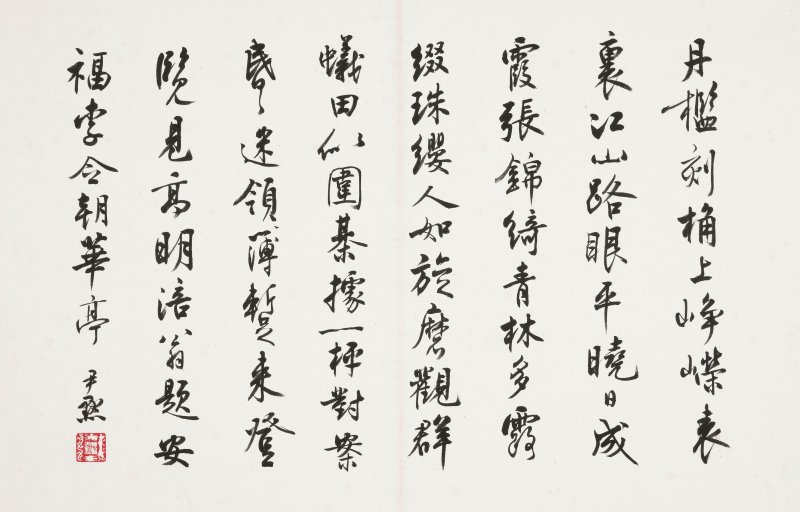 丹檻刻桷上崢嶸表
裏江山路眼平曉日成
霞張錦綺青林多露
綴珠纓人如旋磨觀群
蟻田似圍棊據一枰對案
昏昏迷領簿暫來登
覽見高明涪翁題安
福李令朝華亭
尹默